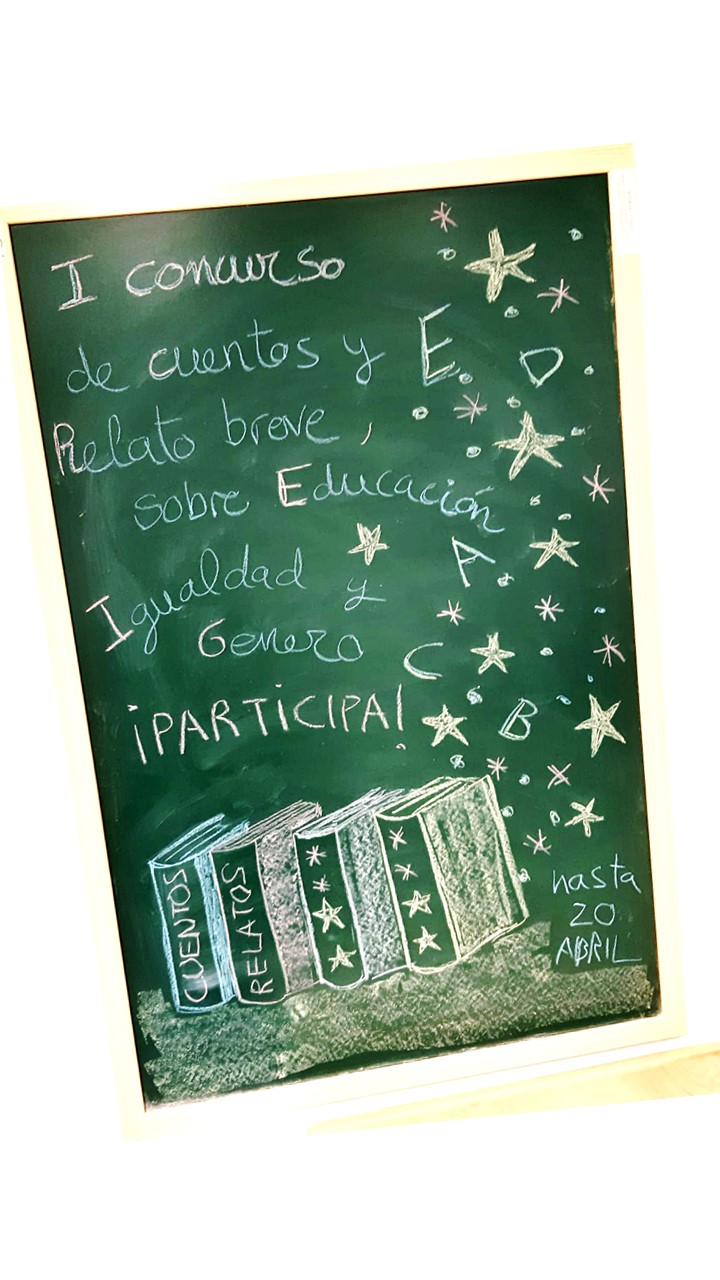 I concurso
de cuentos y
Relato breve,
sobre Educación
Igualdad y
Genero
¡PARTICIPA!
E
D
A
C
B
CUENTOS
RELATOS
hasta
20
ABRIL